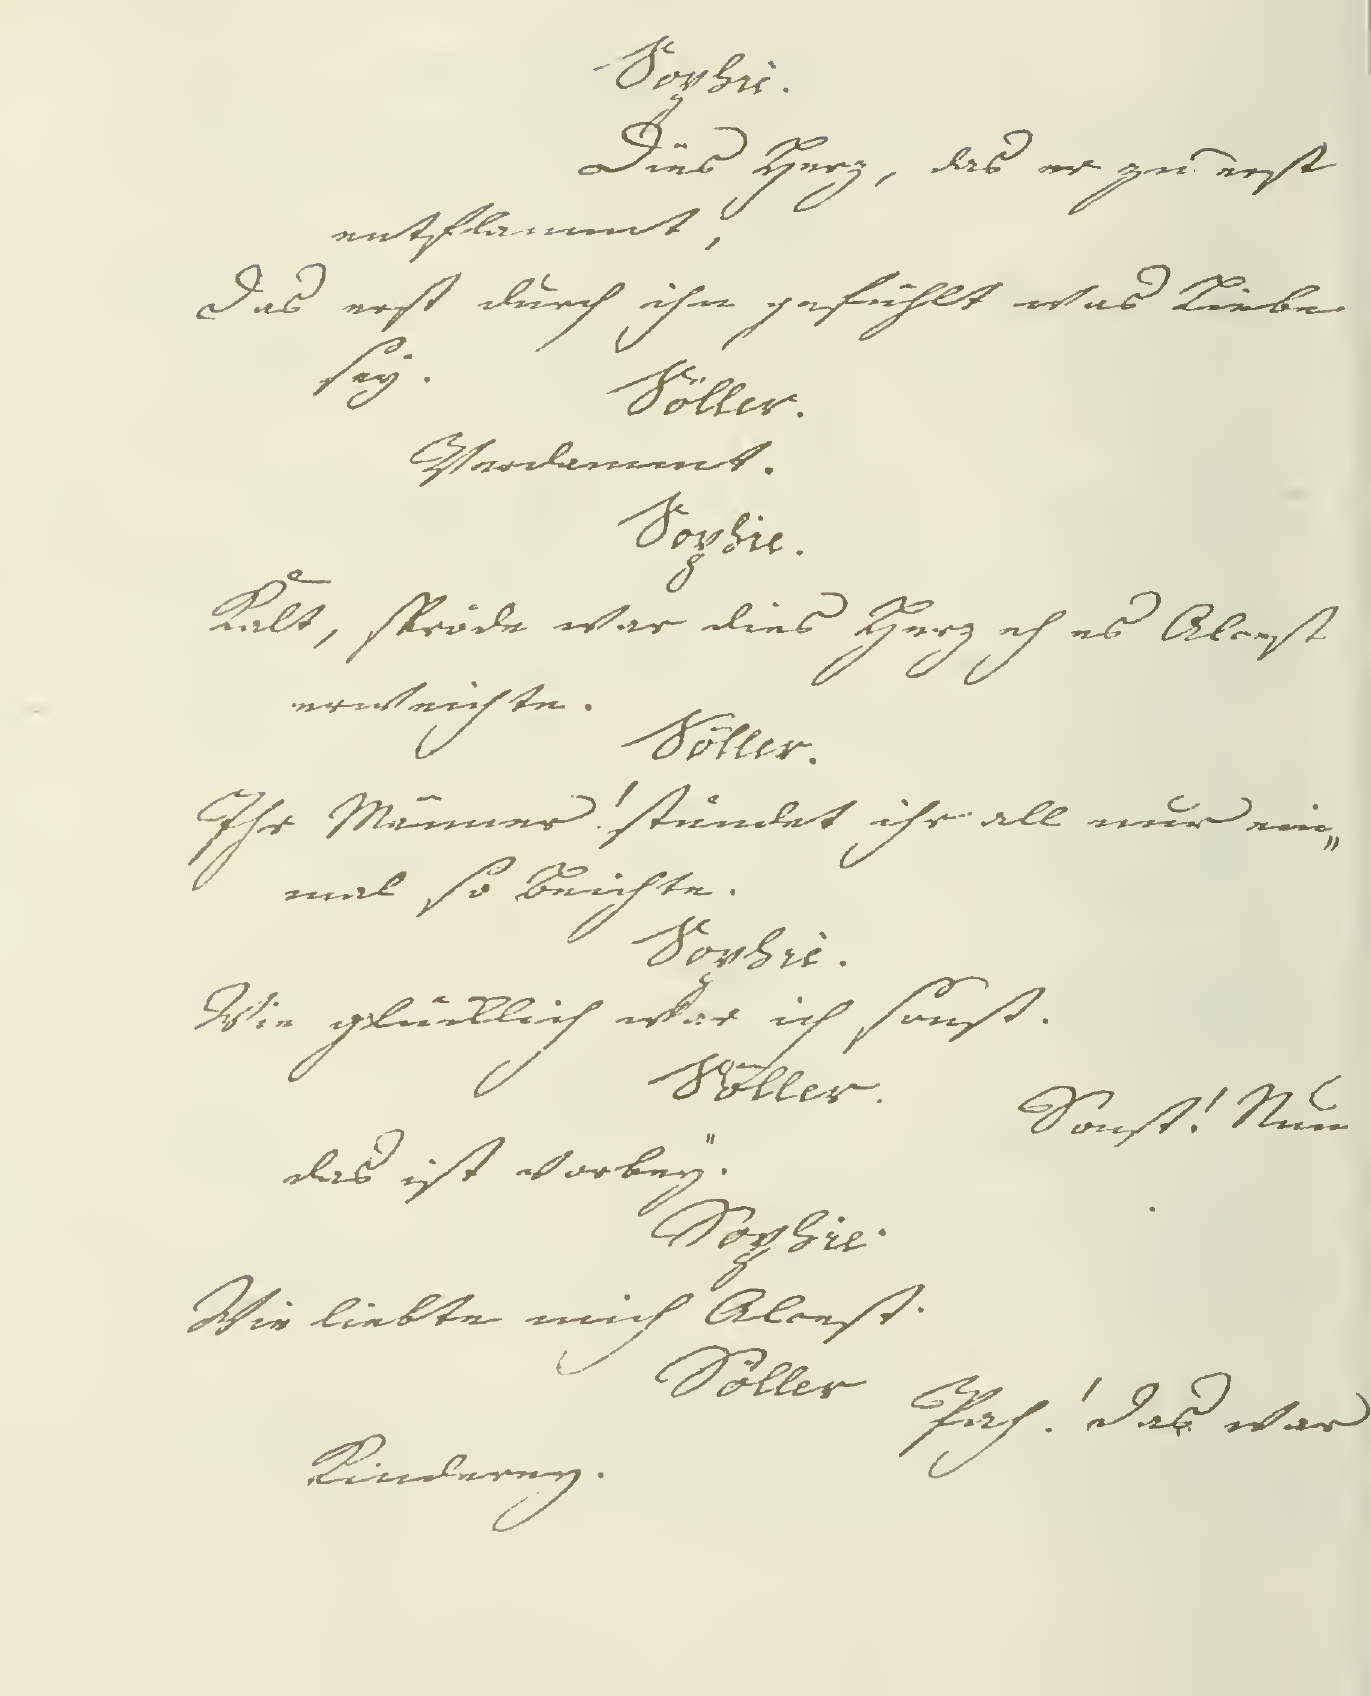 Sophie.
Dies Herz, das er zu erst
entflammt,
Das erst durch ihn gefühlt was Liebe
sey.
Söller.
Verdammt.
Sophie.
Kalt, spröde war dies Herz eh es Alcest
erweichte.
Söller.
Ihr Männer! stündet ihr all nur ein„
mal so Beichte.
Sophie.
Wie glücklich war ich sonst.
Söller.
Sonst! Nun
das ist vorbey.
Sophie.
Wie liebte mich Alcest.
Söller
Pah! das war
Kinderey.